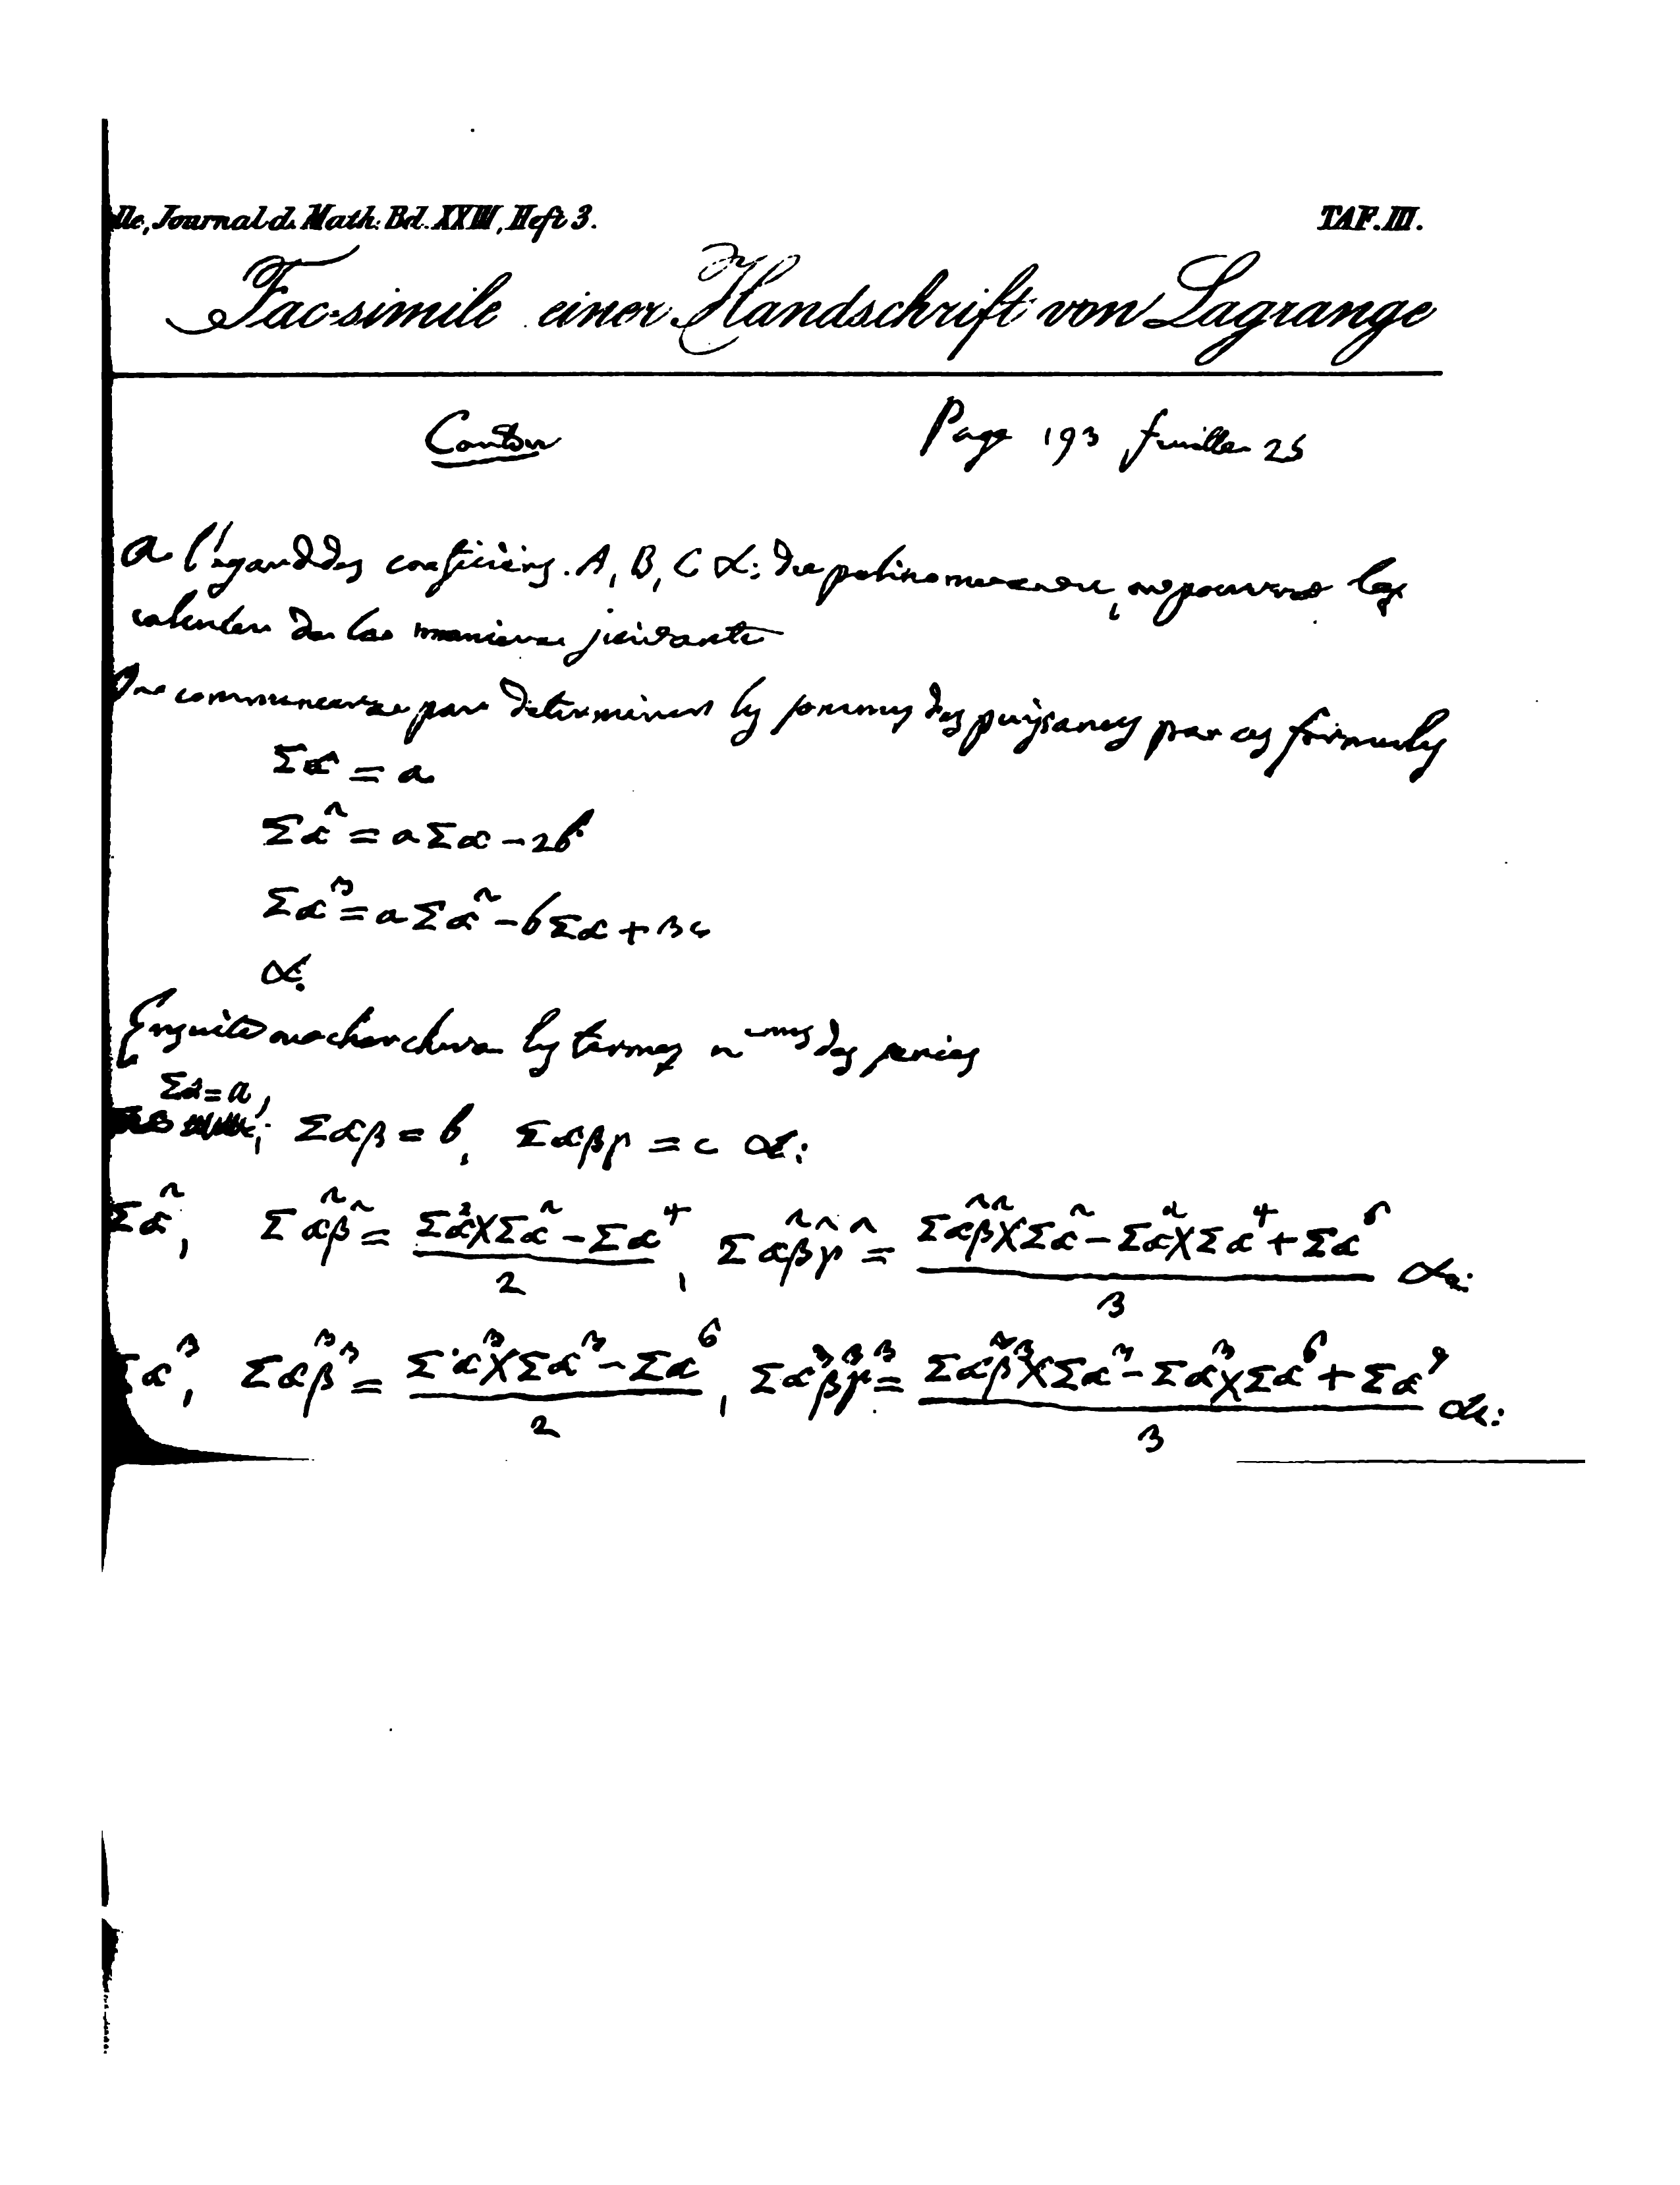 lle, Journal d. Math. Bd. XXIII, Heft 3. TAF. III.
Fac-simile einer Handschrift von Lagrange
Carton Page 193 feuille 25
A l'egard des coeficiens A, B, C &c: du polinome, on pourra les
calculer de la maniere suivante
On commencera par determiner les sommes des puissances par ces formules
Σα = a
Σα² = aΣα - 2b
Σα³ = aΣα² - bΣα + 3c
&c.
Ensuite on cherchera les termes n^emes des series
Σα = a,
Σαβ = b, Σαβγ = c &c:
Σα², Σα²β² = (Σα²×Σα² - Σα⁴)/2, Σα²β²γ² = (Σα²β²×Σα² - Σα²×Σα⁴ + Σα⁶)/3 &c:
Σα³, Σα³β³ = (Σα³×Σα³ - Σα⁶)/2, Σα³β³γ³ = (Σα³β³×Σα³ - Σα³×Σα⁶ + Σα⁹)/3 &c: